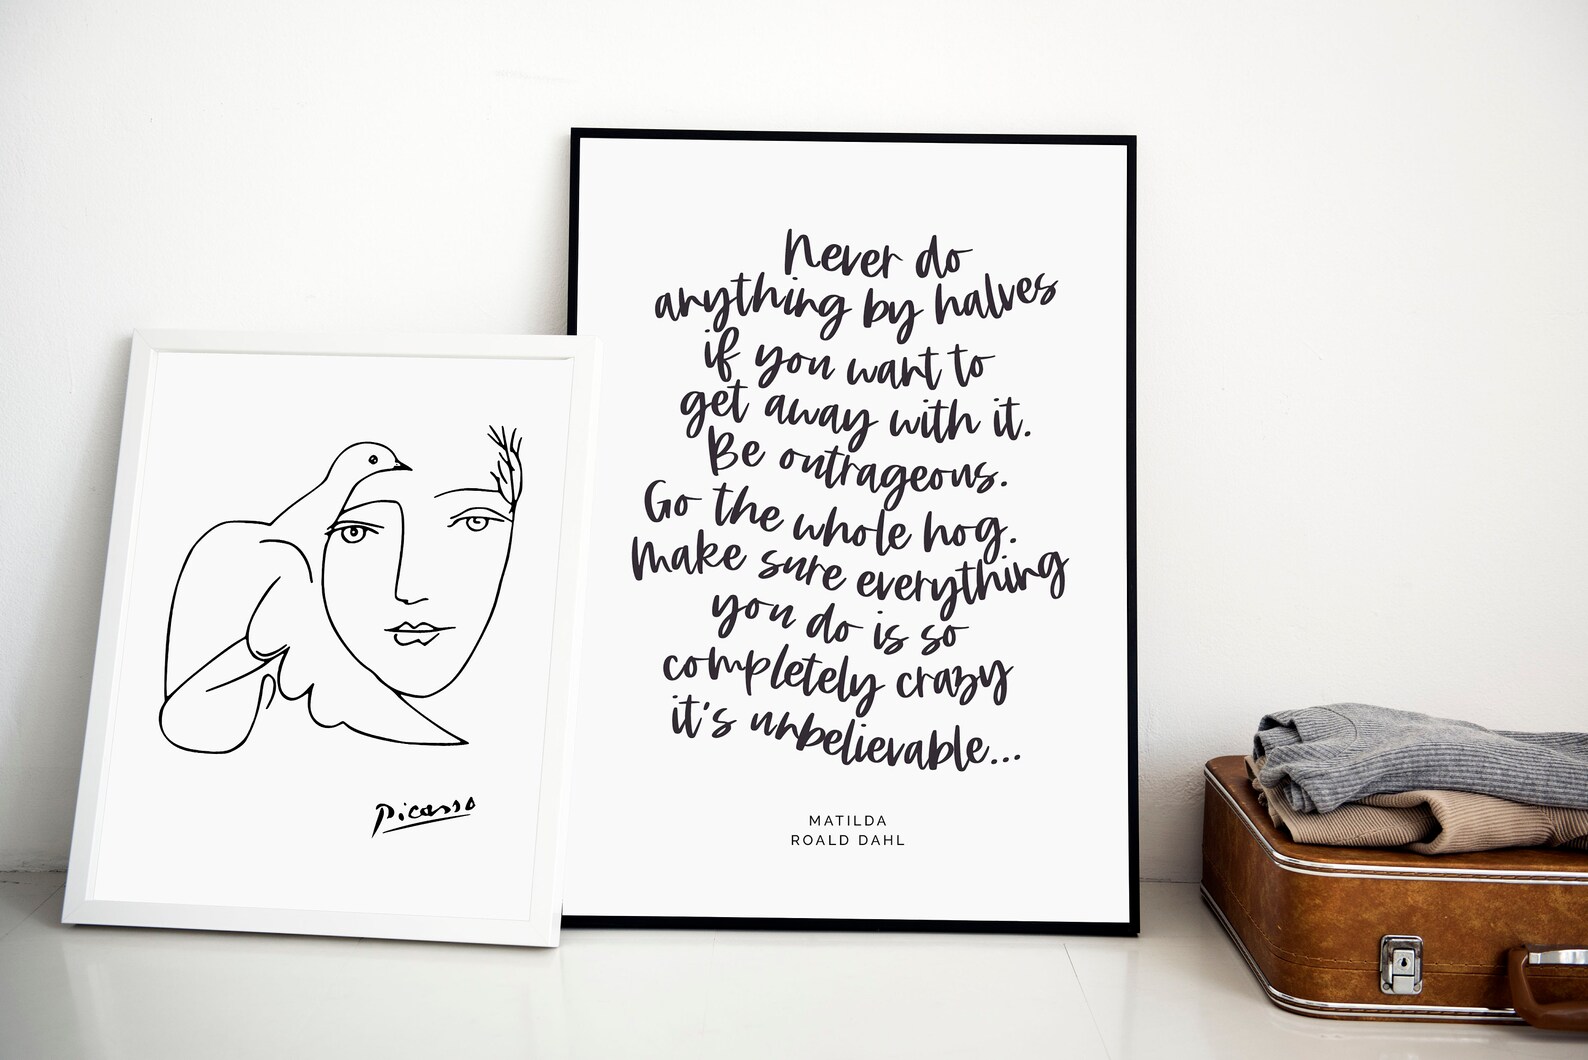 Picasso
Never do
anything by halves
if you want to
get away with it.
Be outrageous.
Go the whole hog.
Make sure everything
you do is so
completely crazy
it's unbelievable...
MATILDA
ROALD DAHL